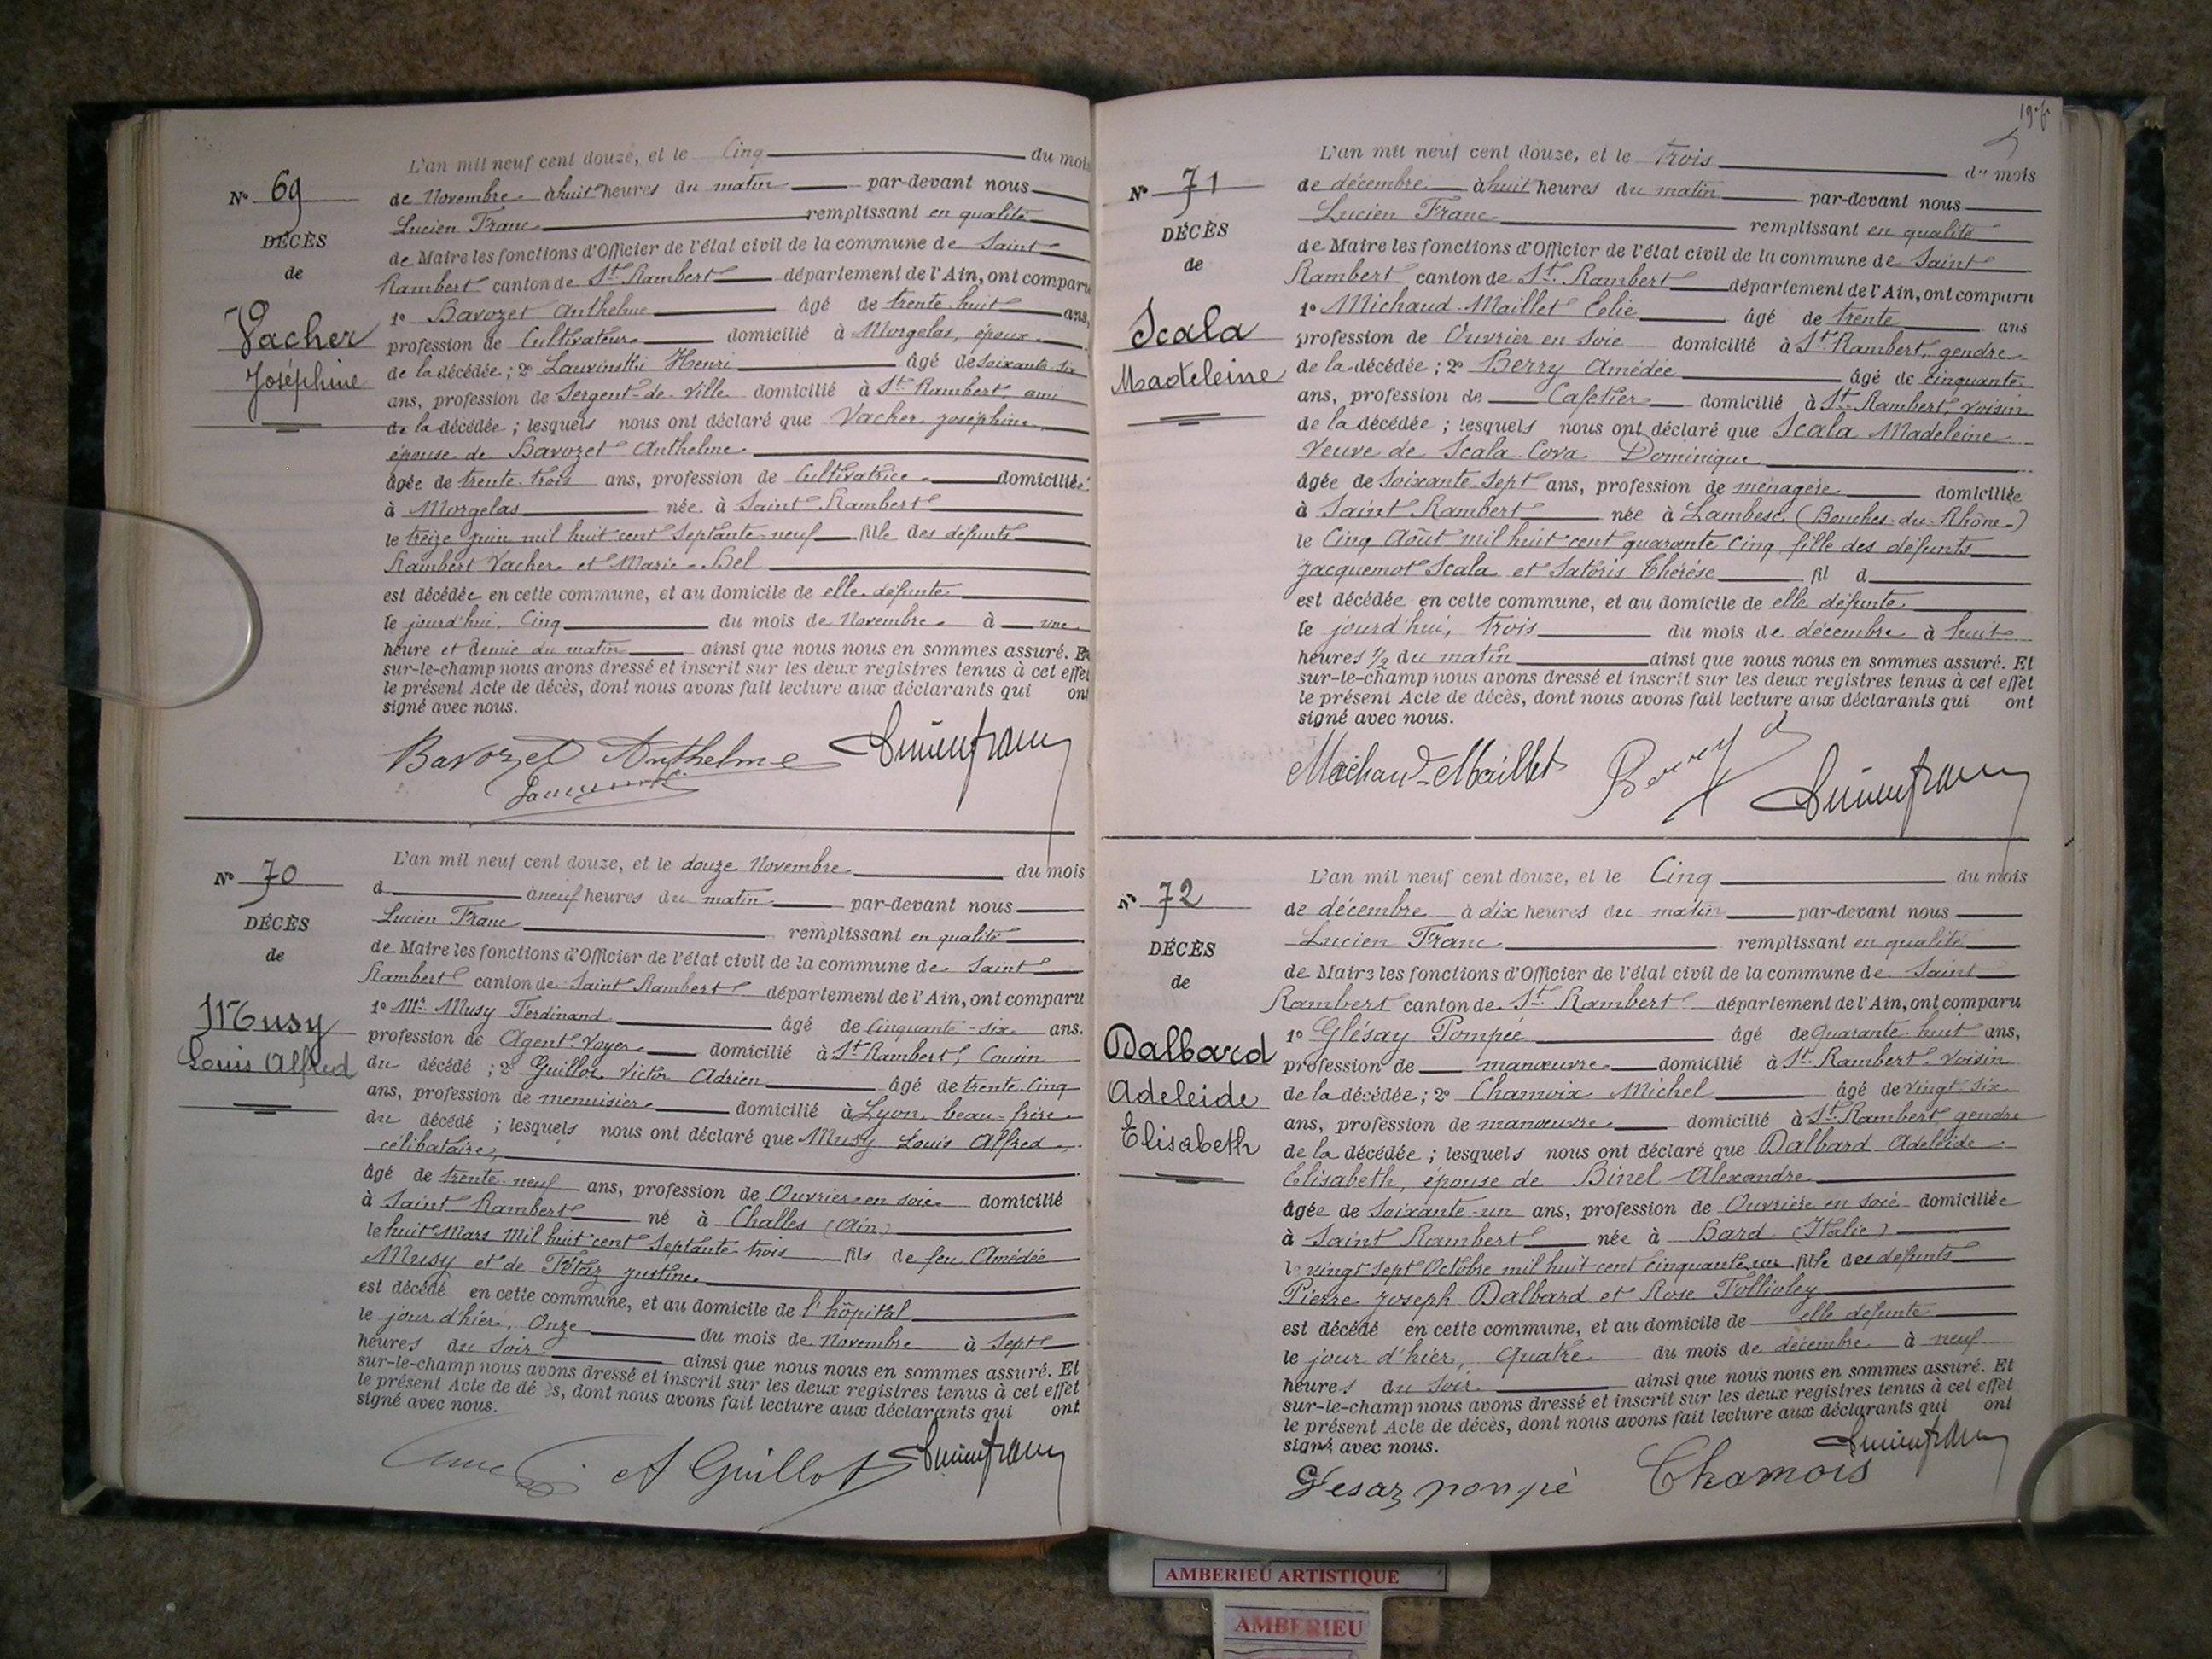 N° 69
DÉCÈS
de
Vacher
Joséphine
L'an mil neuf cent douze, et le Cinq du mois
de Novembre à huit heures du matin par-devant nous
Lucien Franc remplissant en qualité
de Maire les fonctions d'Officier de l'état civil de la commune de Saint
Rambert canton de St. Rambert département de l'Ain, ont comparu
1° Bavozet Anthelme âgé de trente huit ans,
profession de Cultivateur domicilié à Morgelas, époux
de la décédée ; 2° Lauvinski Henri âgé de soixante six
ans, profession de Sergent-de-Ville domicilié à St. Rambert, ami
de la décédée ; lesquels nous ont déclaré que Vacher Joséphine
épouse de Bavozet Anthelme
âgée de trente-trois ans, profession de Cultivatrice domiciliée
à Morgelas née à Saint Rambert
le treize juin mil huit cent septante-neuf fille des défunts
Rambert Vacher et Marie Bel
est décédée en cette commune, et au domicile de elle défunte
le jourd'hui, Cinq du mois de Novembre à une
heure et demie du matin ainsi que nous nous en sommes assuré. Et
sur-le-champ nous avons dressé et inscrit sur les deux registres tenus à cet effet
le présent Acte de décès, dont nous avons fait lecture aux déclarants qui ont
signé avec nous.
Bavozet Anthelme Lucien franc
N° 70
DÉCÈS
de
Musy
Louis Alfred
L'an mil neuf cent douze, et le douze Novembre du mois
d à neuf heures du matin par-devant nous
Lucien Franc remplissant en qualité
de Maire les fonctions d'Officier de l'état civil de la commune de Saint
Rambert canton de Saint Rambert département de l'Ain, ont comparu
1° Mr. Musy Ferdinand âgé de Cinquante-six ans.
profession de Agent-Voyer domicilié à St. Rambert, Cousin
du décédé ; 2° Guillot Victor Adrien âgé de trente Cinq
ans, profession de menuisier domicilié à Lyon, beau-frère
du décédé ; lesquels nous ont déclaré que Musy Louis Alfred
célibataire,
âgé de trente-neuf ans, profession de Ouvrier en soie domicilié
à Saint Rambert né à Challes (Ain)
le huit Mars mil huit cent Septante trois fils de feu Amédée
Musy et de Pétaz Justine
est décédé en cette commune, et au domicile de l'hôpital
le jour d'hier, Onze du mois de Novembre à Sept
heures du Soir ainsi que nous nous en sommes assuré. Et
sur-le-champ nous avons dressé et inscrit sur les deux registres tenus à cet effet
le présent Acte de dé s, dont nous avons fait lecture aux déclarants qui ont
signé avec nous.
A Guillot Lucien franc
N° 71
DÉCÈS
de
Scala
Madeleine
L'an mil neuf cent douze, et le trois du mois
de décembre à huit heures du matin par-devant nous
Lucien Franc remplissant en qualité
de Maire les fonctions d'Officier de l'état civil de la commune de Saint
Rambert canton de St. Rambert département de l'Ain, ont comparu
1° Michaud-Maillet Elie âgé de trente ans
profession de Ouvrier en soie domicilié à St. Rambert, gendre
de la décédée ; 2° Berry Amédée âgé de cinquante
ans, profession de Cafetier domicilié à St. Rambert, voisin
de la décédée ; lesquels nous ont déclaré que Scala Madeleine
Veuve de Scala Cova Dominique
âgée de soixante-sept ans, profession de ménagère domiciliée
à Saint Rambert née à Lambesc (Bouches-du-Rhône)
le Cinq Août mil huit cent quarante cinq fille des défunts
Jacquemot Scala et Satoris Thérèse fil d
est décédée en cette commune, et au domicile de elle défunte
le jourd'hui, trois du mois de décembre à huit
heures 1/2 du matin ainsi que nous nous en sommes assuré. Et
sur-le-champ nous avons dressé et inscrit sur les deux registres tenus à cet effet
le présent Acte de décès, dont nous avons fait lecture aux déclarants qui ont
signé avec nous.
Michaud-Maillet Berry Lucien franc
N° 72
DÉCÈS
de
Dalbard
Adeleide
Elisabeth
L'an mil neuf cent douze, et le Cinq du mois
de décembre à dix heures du matin par-devant nous
Lucien Franc remplissant en qualité
de Maire les fonctions d'Officier de l'état civil de la commune de Saint
Rambert canton de St. Rambert département de l'Ain, ont comparu
1° Glésay Pompée âgé de Quarante huit ans,
profession de manœuvre domicilié à St. Rambert voisin
de la décédée ; 2° Chamoix Michel âgé de vingt-six
ans, profession de manœuvre domicilié à St. Rambert gendre
de la décédée ; lesquels nous ont déclaré que Dalbard Adeleide
Elisabeth, épouse de Binel Alexandre
âgée de Soixante-un ans, profession de Ouvrière en soie domiciliée
à Saint Rambert née à Bard (Italie)
le vingt-sept Octobre mil huit cent cinquante un fille des défunts
Pierre Joseph Dalbard et Rose Follioley
est décédé en cette commune, et au domicile de elle défunte
le jour d'hier, Quatre du mois de décembre à neuf
heures du Soir ainsi que nous nous en sommes assuré. Et
sur-le-champ nous avons dressé et inscrit sur les deux registres tenus à cet effet
le présent Acte de décès, dont nous avons fait lecture aux déclarants qui ont
signé avec nous.
Glesaz pompé Chamois Lucien franc
AMBERIEU ARTISTIQUE
AMBERIEU